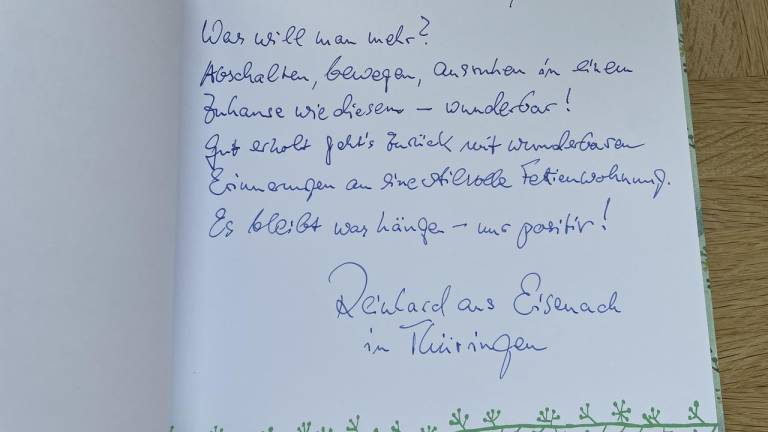 Was will man mehr?
Abschalten, bewegen, ausruhen in einem
Zuhause wie diesem – wunderbar!
Gut erholt geht's zurück mit wunderbaren
Erinnerungen an eine stilvolle Ferienwohnung.
Es bleibt was hängen – nur positiv!
Reinhard aus Eisenach
in Thüringen